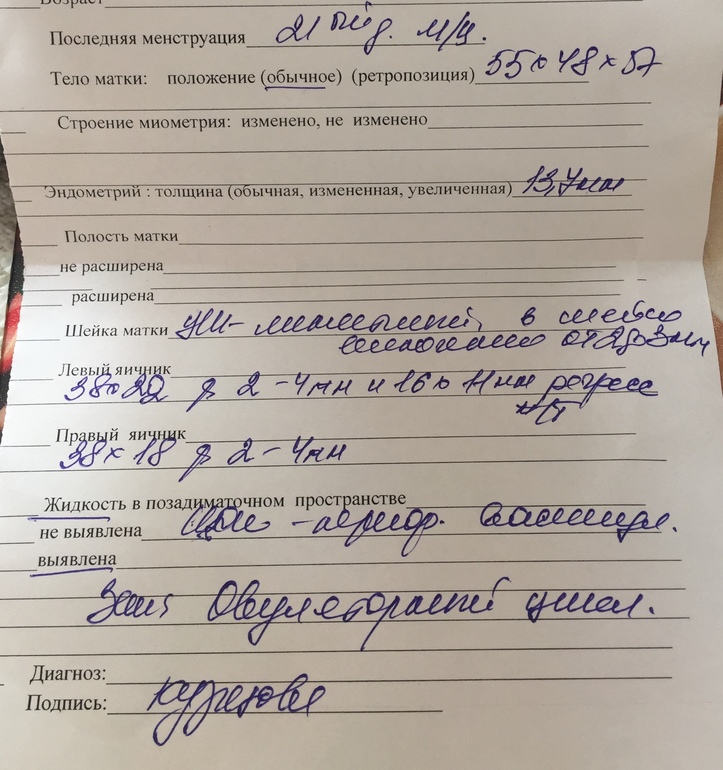 Возраст
Последняя менструация 21 ый д. м/ц.
Тело матки: положение (обычное) (ретропозиция) 55х48х57
Строение миометрия: изменено, не изменено
Эндометрий : толщина (обычная, измененная, увеличенная) 13,7мм
Полость матки
не расширена
расширена
Шейка матки в шейке
от 2 до 3мм
Левый яичник
38х22 2-4мм и 16х11мм регресс
ж/т
Правый яичник
38х18 2-4мм
Жидкость в позадиматочном пространстве
не выявлена
выявлена
Закл: Овуляторный цикл.
Диагноз:
Подпись: